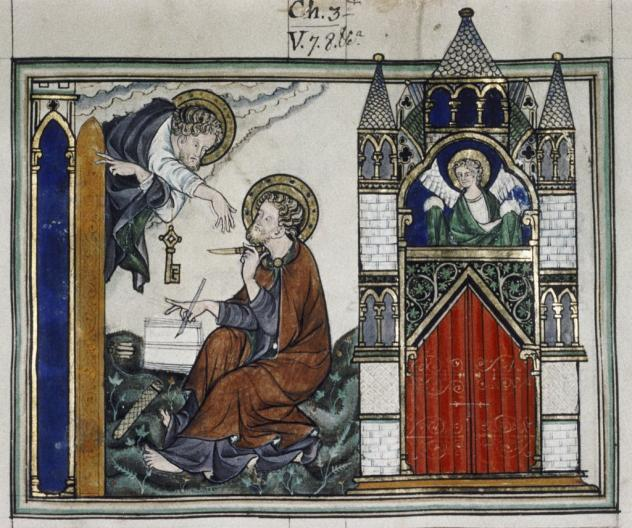 Ch. 3
V. 7. 8.